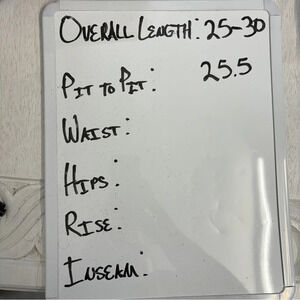 OVERALL LENGTH: 25-30
PIT TO PIT: 25.5
WAIST:
HIPS:
RISE:
INSEAM: